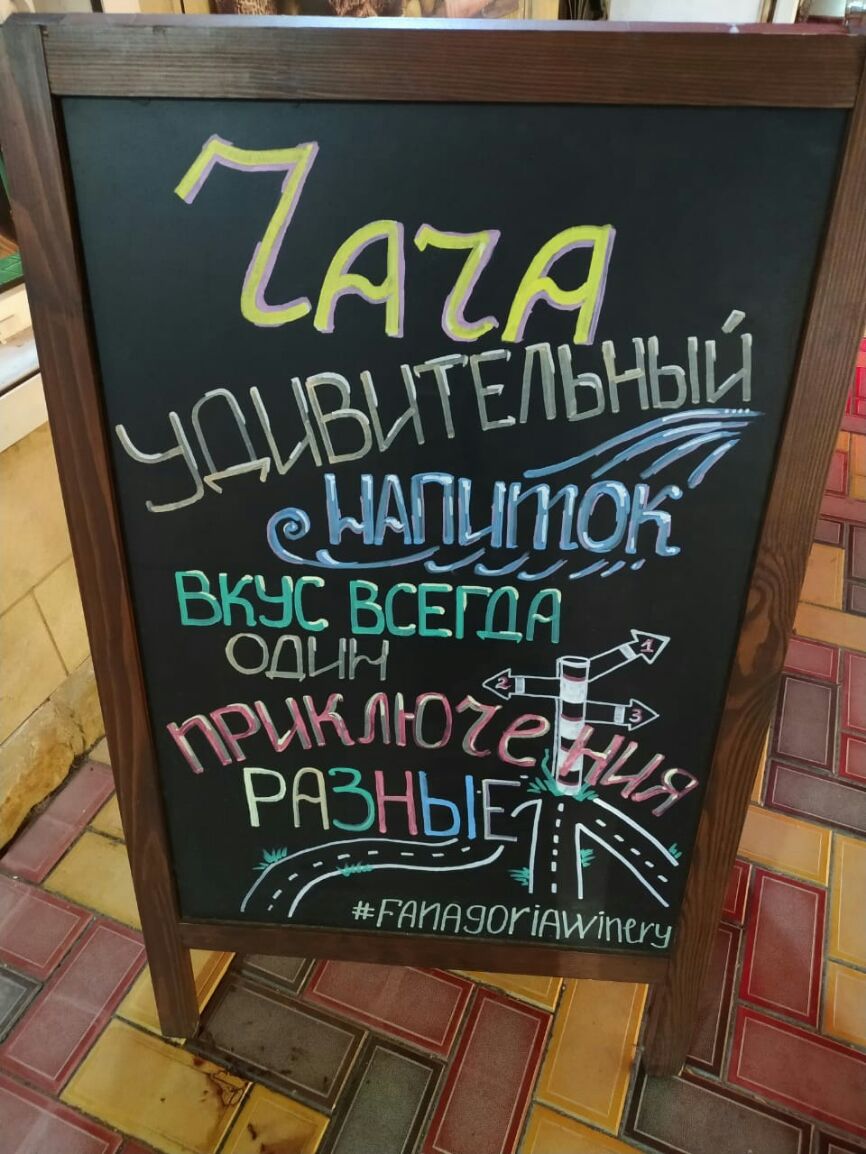 Чача
УДИВИТЕЛЬНЫЙ
НАПИТОК
ВКУС ВСЕГДА
ОДИН
ПРИКЛЮЧЕНИЯ
РАЗНЫЕ
1
2
3
#FANAGORIAWINERY